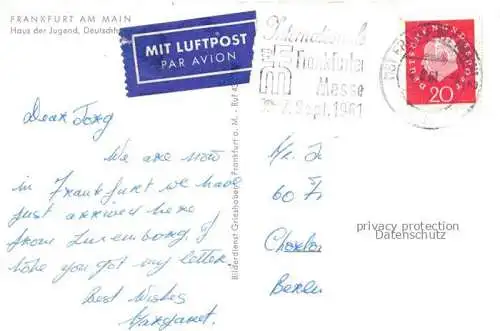 FRANKFURT AM MAIN
Haus der Jugend, Deutschh
MIT LUFTPOST
PAR AVION
Internationale
Frankfurter
Messe
7. Sept. 1961
DEUTSCHE BUNDESPOST
20
Bilderdienst Grieshaber, Frankfurt a. M. - Ruf 4
Dear Jorg
We are now
in Frankfurt we have
just arrived here
from Luxembourg. I
hope you got my letter.
Best Wishes
Margaret.
Mr. J
60 F
Charlo
Berlin
privacy protection
Datenschutz